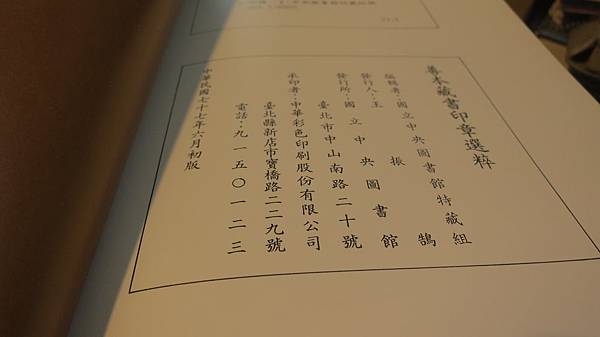 善本藏書印章選粹
編輯者：國立中央圖書館特藏組
發行人：王振鵠
發行所：國立中央圖書館
臺北市中山南路二十號
承印者：中華彩色印刷股份有限公司
臺北縣新店市寶橋路二二九號
電話：九一五〇一二三
中華民國七十七年六月初版